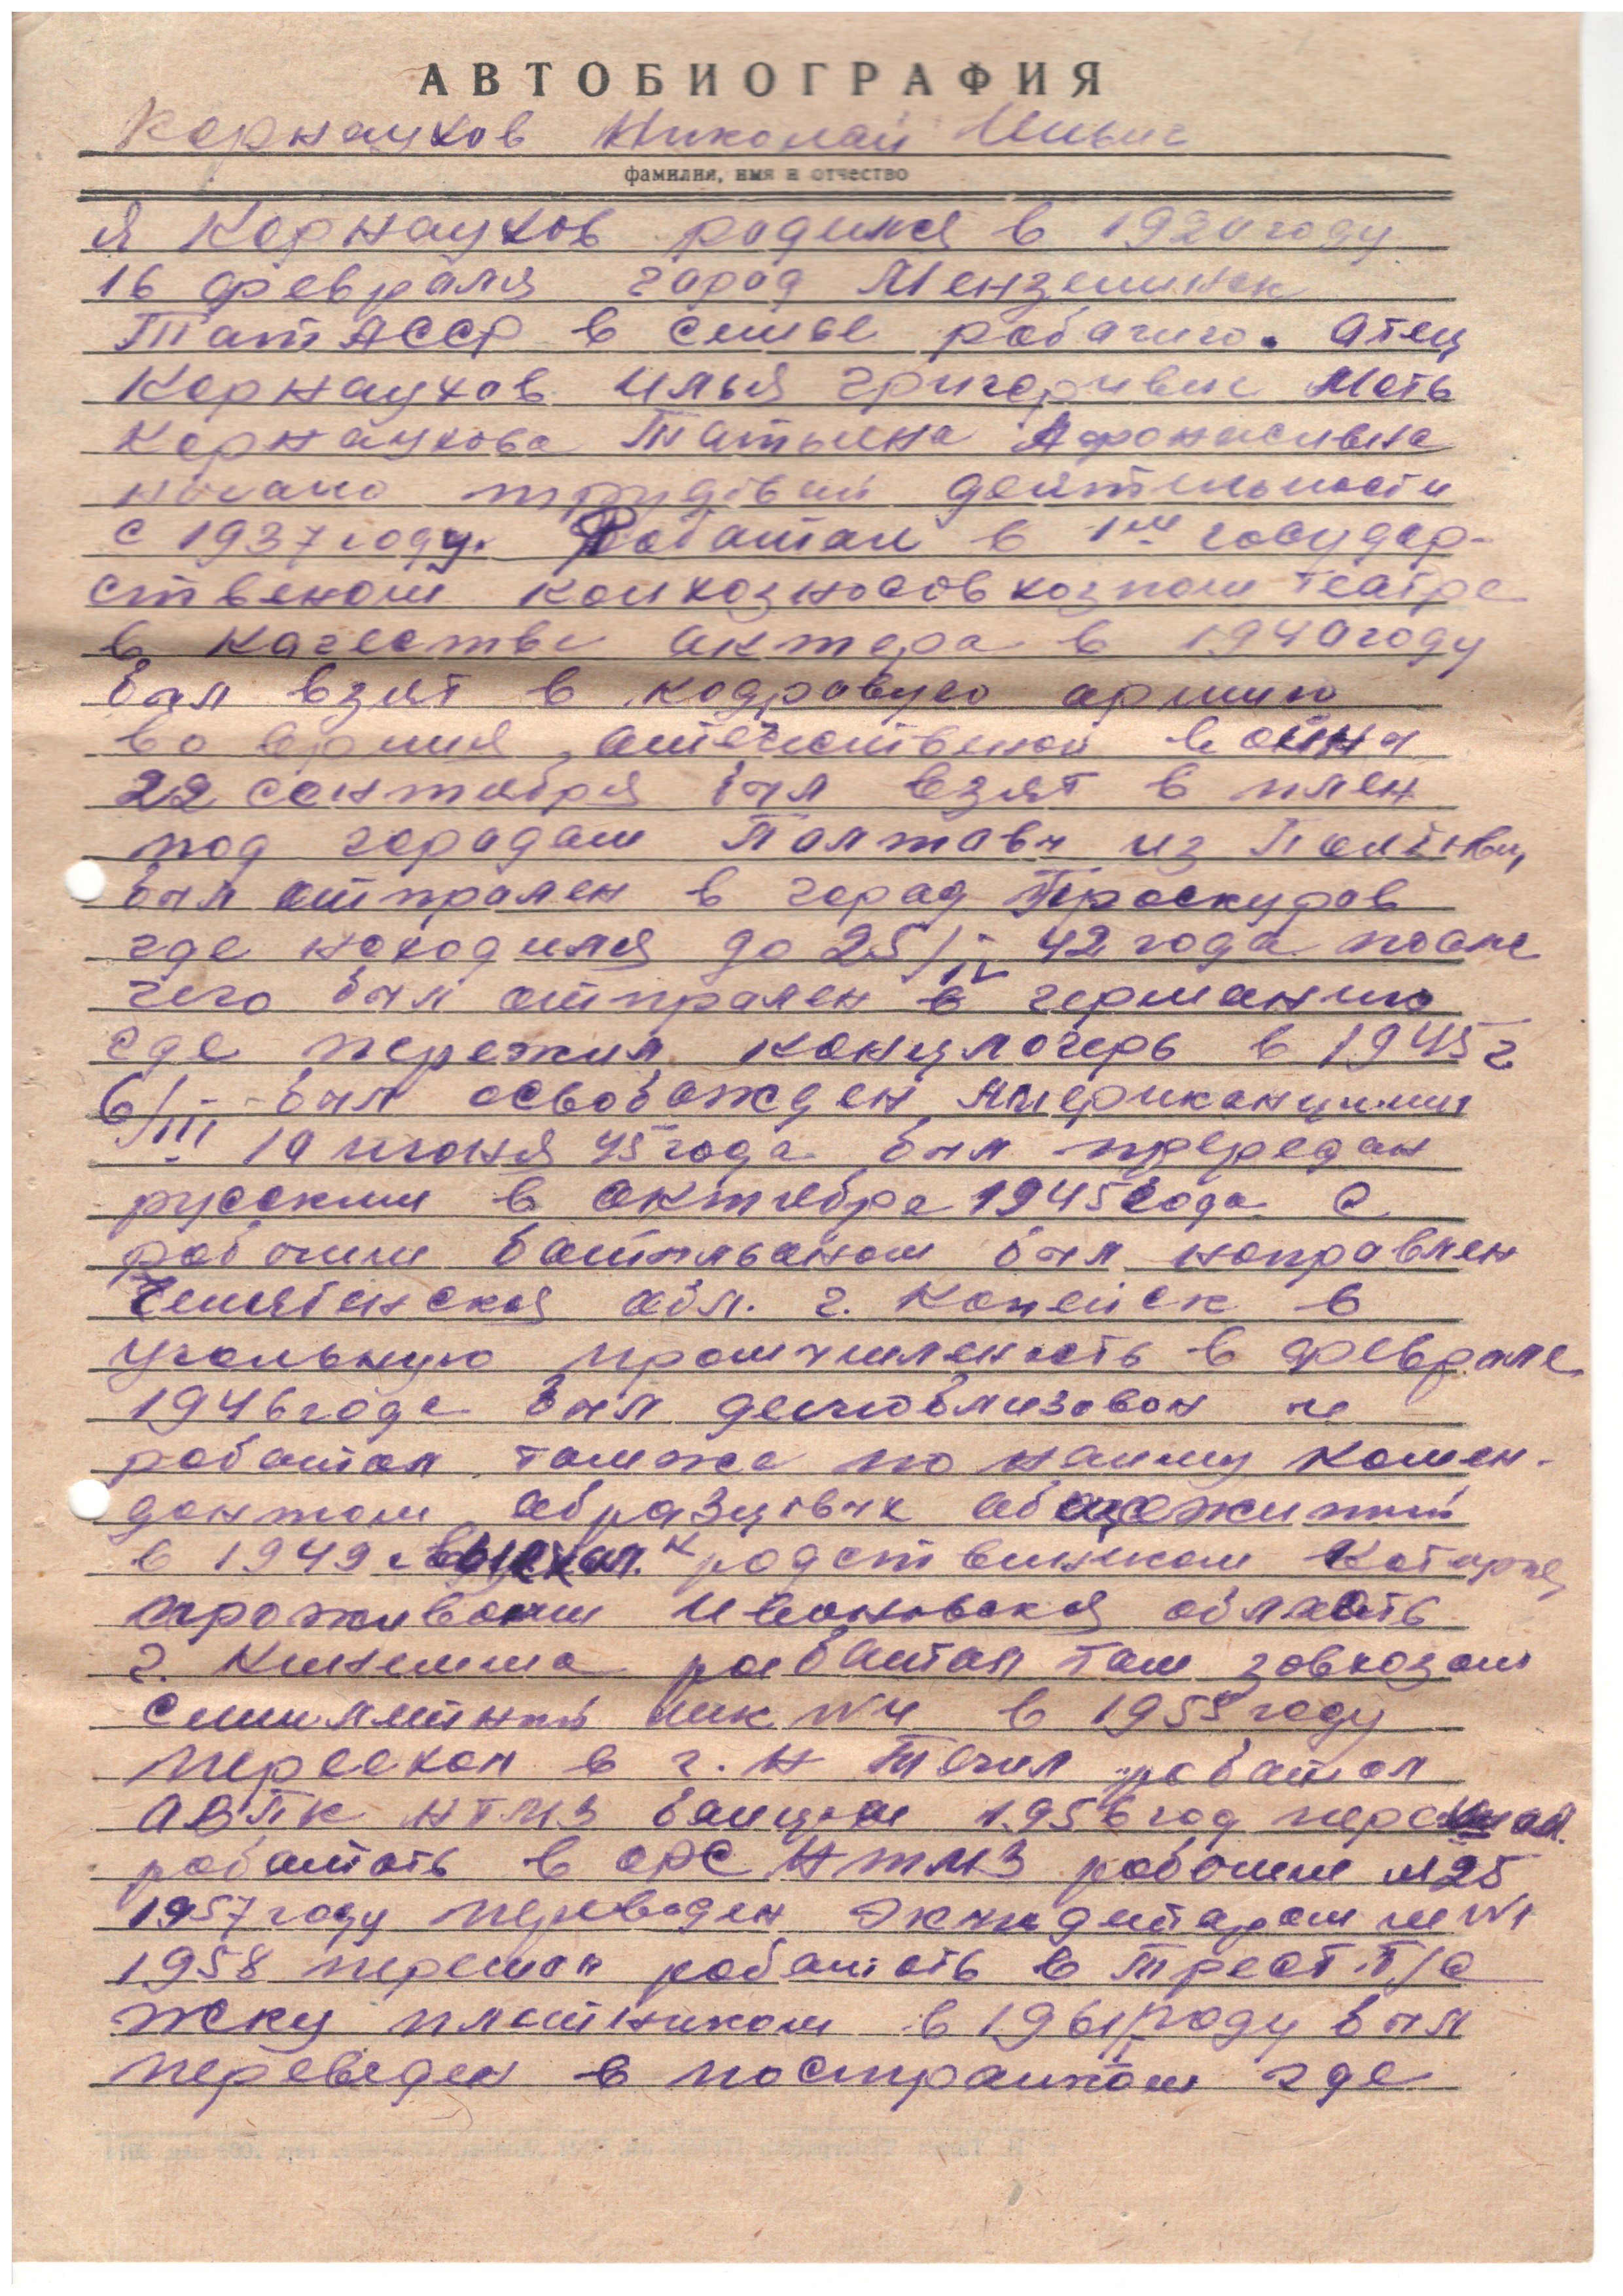 АВТОБИОГРАФИЯ
Корнаухов Николай Ильич
фамилия, имя и отчество
Я Корнаухов родился в 1920 году
16 февраля город Мензелинск
ТатАССР в семье робачиго. Атец
Корнаухов Илья Григоривич Мать
Корнаухова Татьяна Афонасивна
начало трудовой деятельности
с 1937 году. Работал в 1ом государ-
ственом колхозносовхозном театре
в качестве актера в 1940 году
был взят в кадравую армию
во время атечественой войны
22 сентября был взят в плен
под горадам Палтавы из Полтавы
был отпрален в горад Проскуров
где находился до 25/IV 42 года после
чего был отпрален в германию
где пережил концлагерь в 1945 г
6/III был освобажден Американцими
10 июня 45 года был передан
руским в октябре 1945 года с
рабочим батальоном был направлен
Челябинская обл. г. Копейск в
угольную промышленость в феврале
1946 года был демобилизован и
работал томже по найму комен-
дантом образцовых общежитий
в 1949 г выехал к родствиником которые
проживали Ивановская область
г. Кинешма работал там завхозом
в 1955 году
переехал в г. Н Тагил работал
НТМЗ 1956 год перешел
работать в ОРС НТМЗ рабочим м 25
1957 году переведен м N1
1958 перешол работать в Трест Т/С
жку плотником в 1961 году был
переведен в где